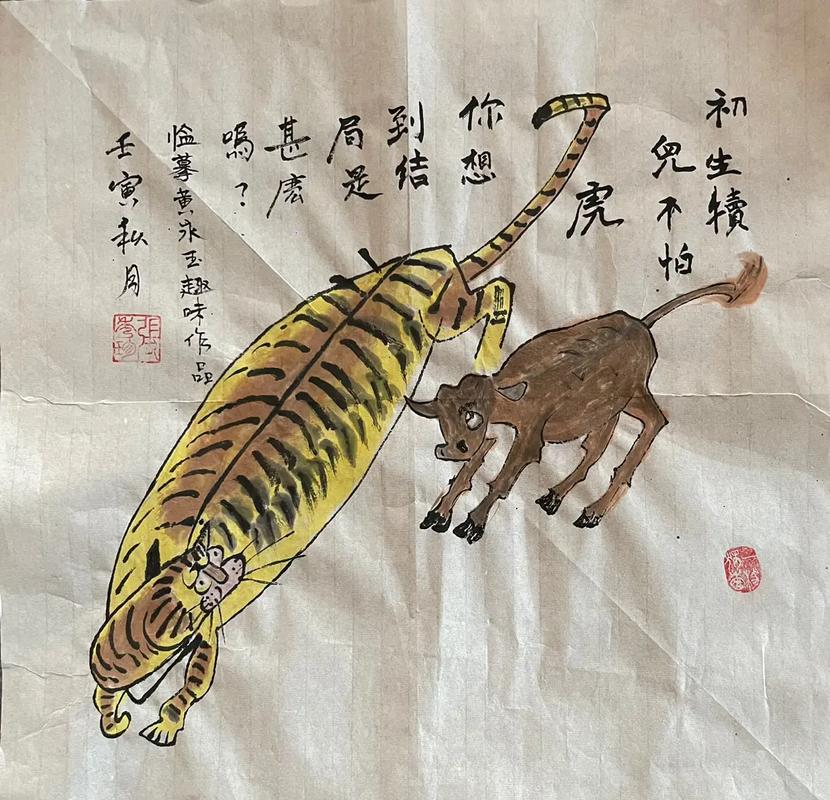 初生犢
兒不怕
虎
你想
到结
局是
甚麽
嗎？
臨摹黄永玉趣味作品
壬寅秋月